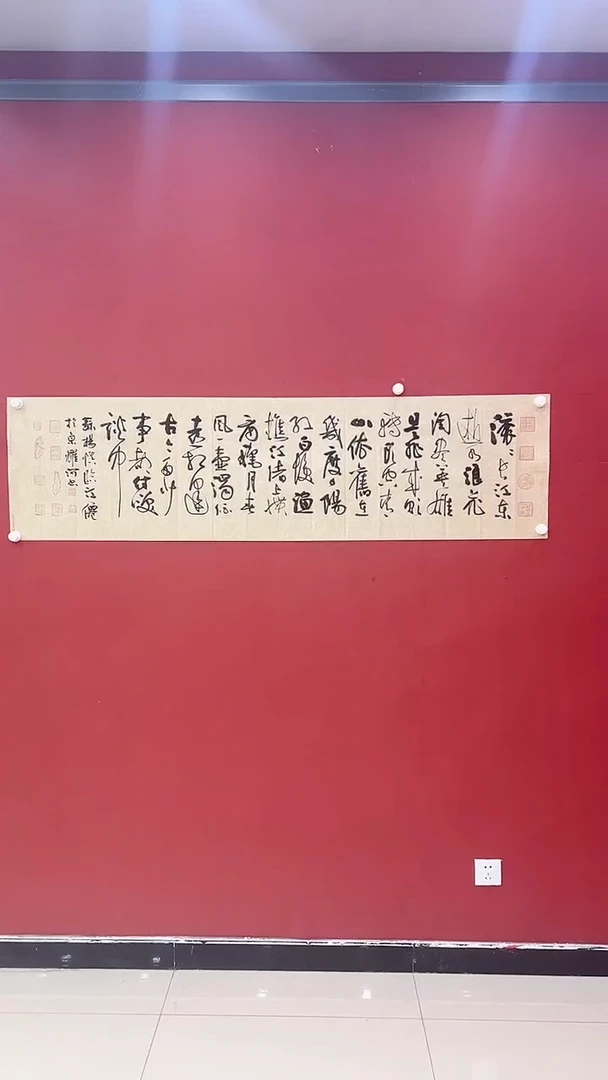 滚〻长江东
逝水浪花
淘尽英雄
是非成败
转头空青
山依舊在
幾度夕陽
红白髮渔
樵江渚上惯
看秋月春
风一壶濁酒
喜相逢
古今多少
事都付笑
谈中
杨慎临江仙